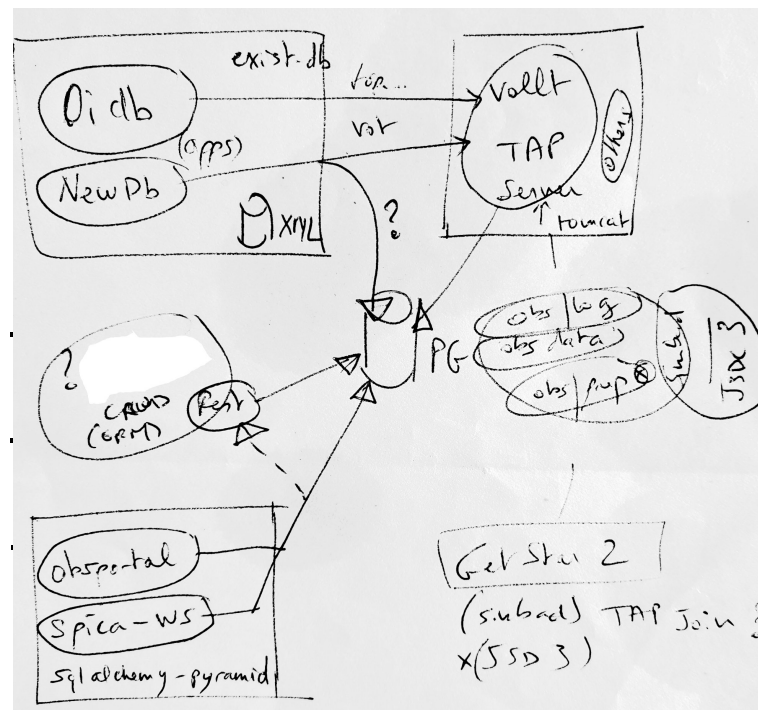 exist-db
Oidb
(apps)
NewDb
tap...
vot
?
Vollt
TAP
Server
others
tomcat
PG
obs log
obs data
obs
simbad
JSDC 3
?
CRUD
(ORM)
Rest
obsportal
Spica-WS
sqlalchemy-pyramid
GetStar 2
(sinbad) TAP Join